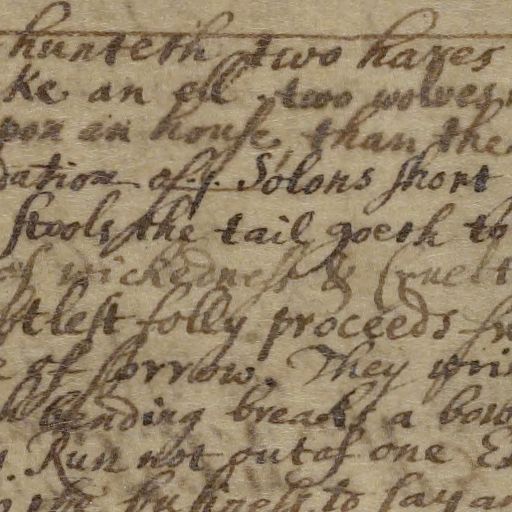 hunteth two hares
ke an ell two wolves
pon an house, than the
dation of y. Solons short
stools the tail goeth to
of wickedness & Cruelt
btlest folly proceeds fr
e of sorrow. They
bending breaks a bow
Run not out of one
the business to say